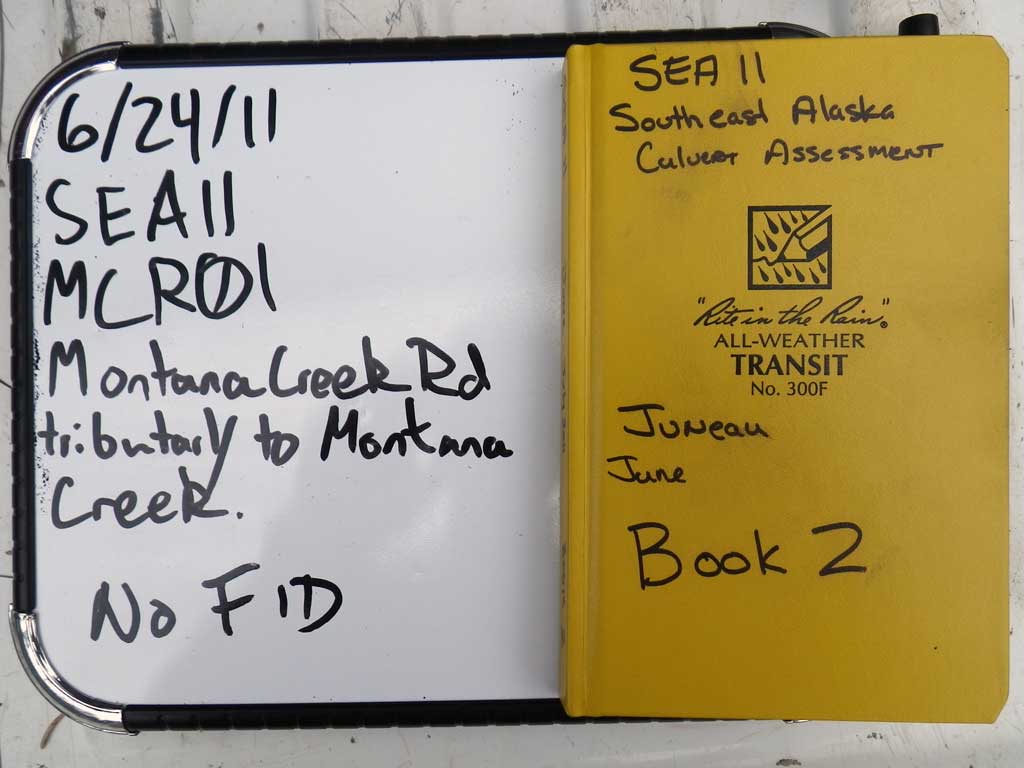 6/24/11
SEA11
MCR01
Montana Creek Rd
tributary to Montana
Creek.
No FID
SEA 11
Southeast Alaska
Culvert Assessment
"Rite in the Rain"®
ALL-WEATHER
TRANSIT
No. 300F
Juneau
June
Book 2